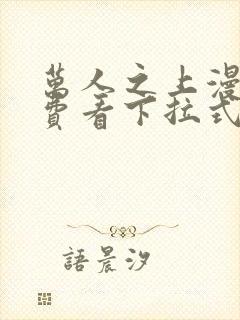 萬人之上漫
費看下拉式
語晨汐